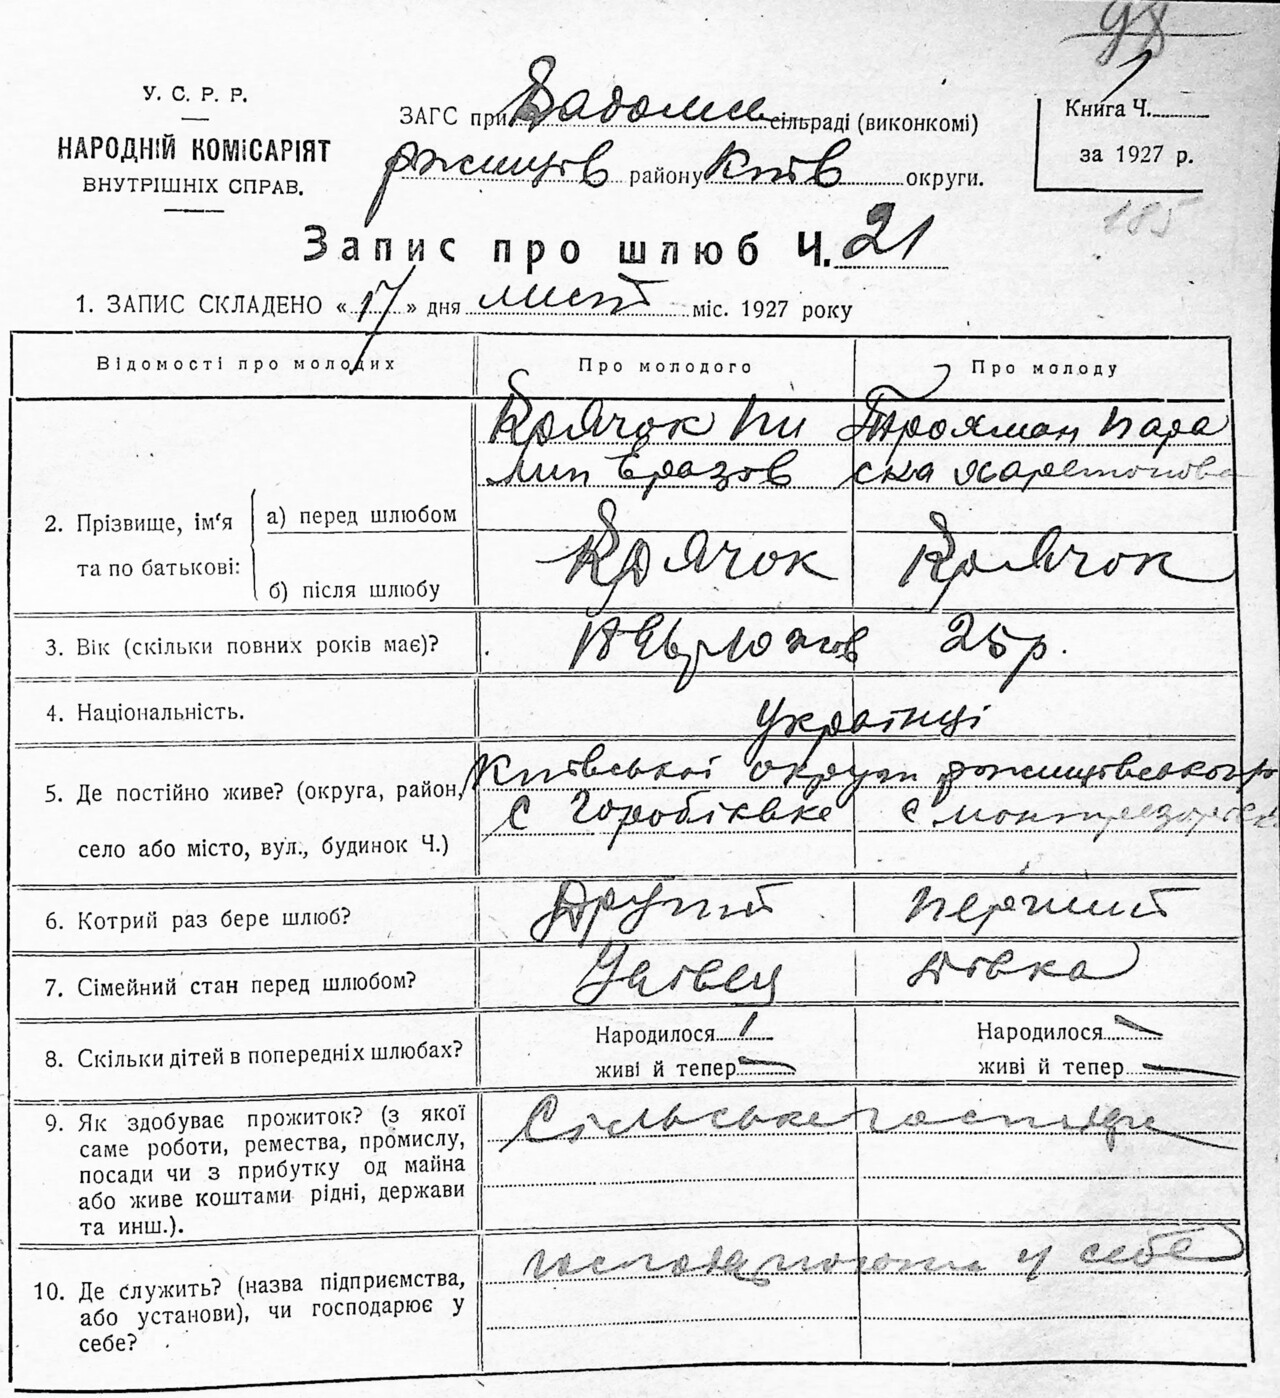 98
У. С. Р. Р.
НАРОДНІЙ КОМІСАРІЯТ
ВНУТРІШНІХ СПРАВ.
ЗАГС при сільраді (виконкомі)
ржищів району Київ округи.
Книга Ч. 1
за 1927 р.
185
Запис про шлюб Ч. 21
1. ЗАПИС СКЛАДЕНО « 17 » дня лист міс. 1927 року
Відомості про молодих
Про молодого
Про молоду
2. Прізвище, ім'я та по батькові:
а) перед шлюбом
Крячок Пи
лип Еразов
Трохман Пара
ска Харетонова
б) після шлюбу
Крячок
Крячок
3. Вік (скільки повних років має)?
25р.
4. Національність.
Українці
5. Де постійно живе? (округа, район,
село або місто, вул., будинок Ч.)
Київської округи ржищівського
с Горобіївке с
6. Котрий раз бере шлюб?
Другий
перший
7. Сімейний стан перед шлюбом?
Удівец
Дівка
8. Скільки дітей в попередніх шлюбах?
Народилося 1
живі й тепер —
Народилося —
живі й тепер —
9. Як здобуває прожиток? (з якої
саме роботи, ремества, промислу,
посади чи з прибутку од майна
або живе коштами рідні, держави
та инш.).
Сільське
10. Де служить? (назва підприємства,
або установи), чи господарює у
себе?
у себе